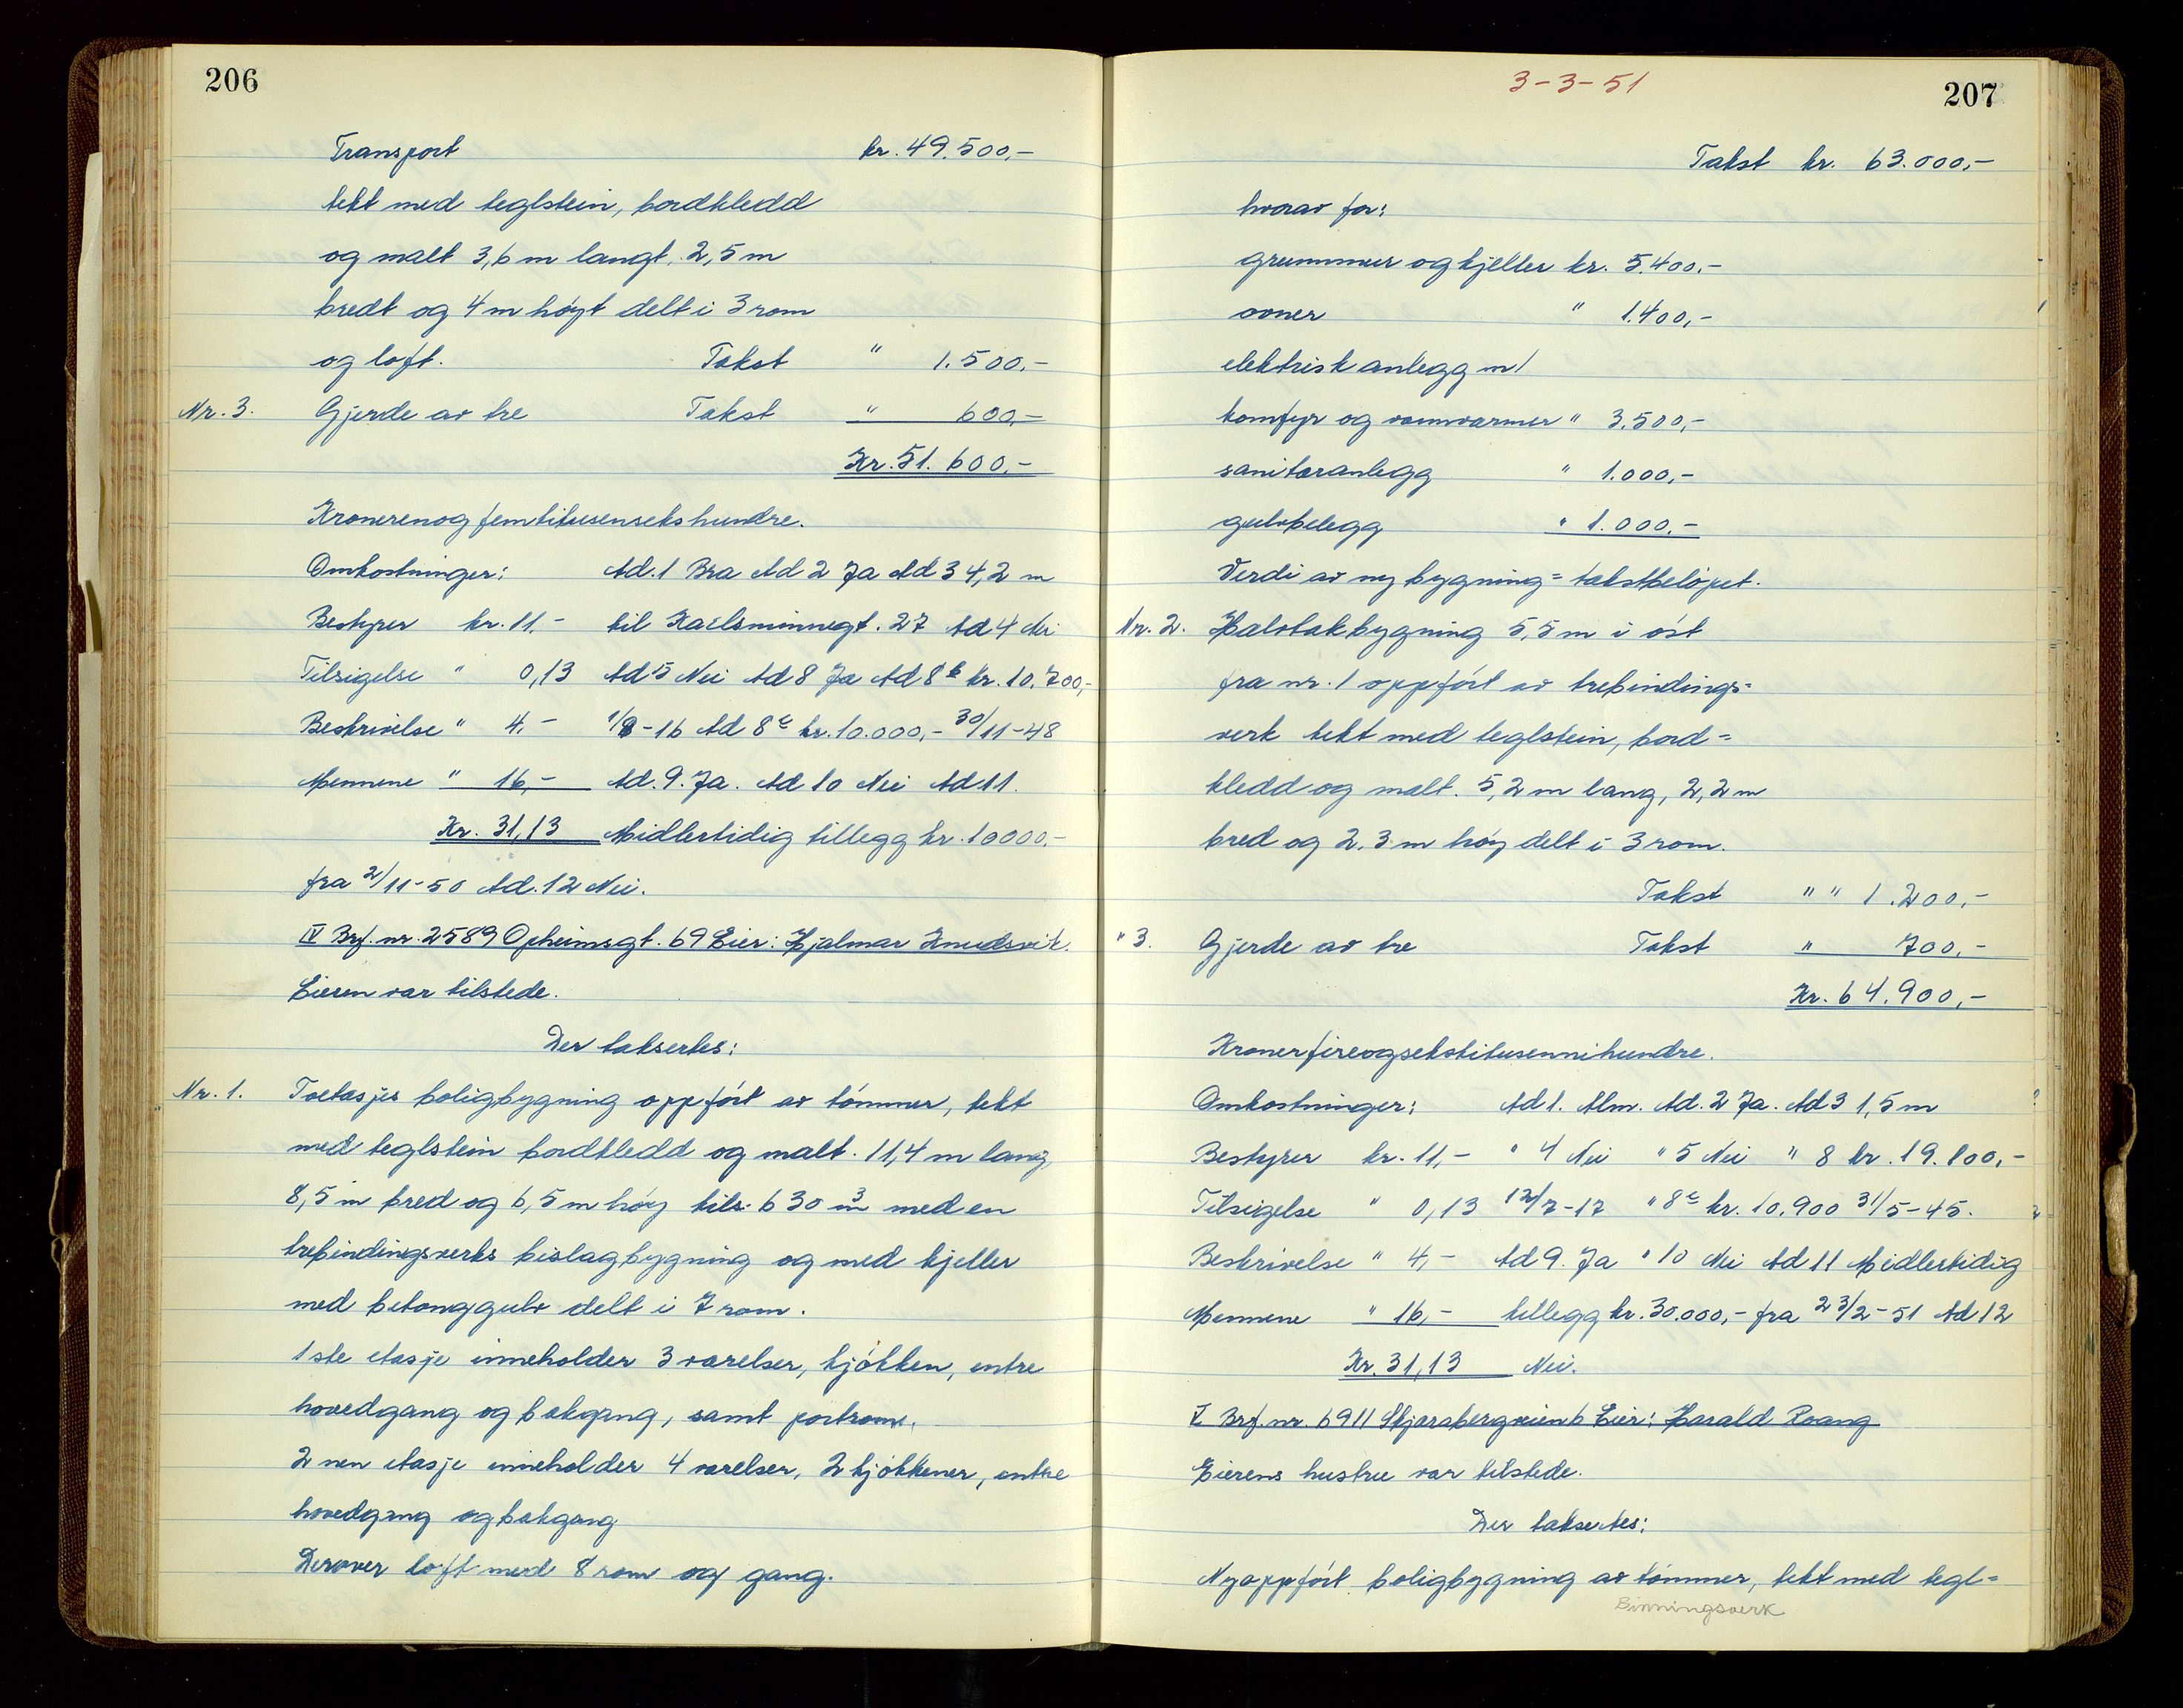 206
Transport kr. 49.500,-
tekt med teglstein, bordkledd
og malt 3,6 m langt, 2,5 m
bredt og 4 m høyt delt i 3 rom
og loft. Takst " 1.500.-
Nr. 3. Gjerde av tre Takst " 600,-
Kr. 51.600,-
Kronerenogfemtitusenseks hundre.
Omkostninger: Ad.1 Bra Ad 2 Ja Ad 3 4,2 m
Bestyrer kr. 11.- til Karlsminnegt. 27 Ad 4 Nei
Tilsigelse " 0,13 Ad 5 Nei Ad 8 Ja Ad 8 b kr. 10.700,-
Beskrivelse " 4.- 1/8-16 Ad 8 c kr. 10.000,- 30/11-48
Mennene " 16,- Ad. 9. Ja. Ad 10 Nei Ad 11.
Kr. 31,13 Midlertidig tillegg kr. 10000.-
fra 2/11-50 Ad. 12 Nei.
IV Brf. nr. 2589 Opheimsgt. 69 Eier: Hjalmar Knudsvik.
Eieren var tilstede.
Der taksertes:
Nr. 1. Toetasjes boligbygning oppført av tømmer, tekt
med teglstein bordkledd og malt. 11,4 m lang,
8,5 m bred og 6,5 m høy tils. 630 m3 med en
trebindingsverks bislagbygning og med kjeller
med betonggulv delt i 7 rom.
1ste etasje inneholder 3 værelser, kjøkken, entre
hovedgang og bakgang, samt portrom.
2nen etasje inneholder 4 værelser, 2 kjøkkener, entre
hovedgang og bakgang
Derover loft med 8 rom og gang.
3-3-51
207
Takst kr. 63.000,-
hvorav for:
grunnmur og kjeller kr. 5.400.-
ovner " 1.400,-
elektrisk anlegg m/
komfyr og vannvarmer " 3.500,-
sanitæranlegg " 1.000,-
gulvbelegg " 1.000.-
Verdi av ny bygning = takstbeløpet.
Nr. 2. Halvtakbygning 5,5 m i øst
fra nr. 1 oppført av trebindings=
verk tekt med teglstein, bord=
kledd og malt. 5,2 m lang, 2,2 m
bred og 2.3 m høy delt i 3 rom.
Takst " " 1.200.-
" 3. Gjerde av tre Takst " 700,-
Kr. 64.900,-
Kronerfireogsekstitusennihundre.
Omkostninger: Ad 1. Alm. Ad. 2 Ja. Ad 3 1,5 m
Bestyrer kr. 11,- " 4 Nei " 5 Nei " 8 kr. 19.800.-
Tilsigelse " 0,13 12/7-17 " 8 c kr. 10.900 31/5-45.
Beskrivelse " 4,- Ad 9. Ja " 10 Nei Ad 11 Midlertidig
Mennene " 16,- tillegg kr. 30.000,- fra 23/2-51 Ad 12
Kr. 31,13 Nei.
V Brf. nr. 6911 Skjærabergveien 6 Eier: Harald Roang
Eierens hustru var tilstede.
Der takseres:
Nyoppført boligbygning av tømmer, tekt med tegl=
Binningsverk